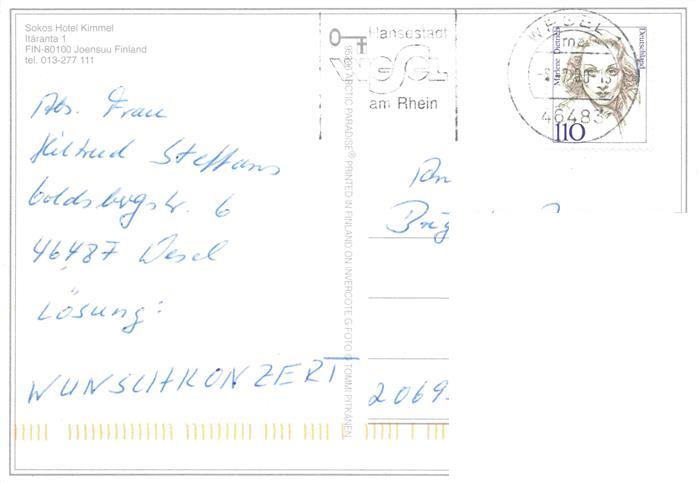 Sokos Hotel Kimmel
Itäranta 1
FIN-80100 Joensuu Finland
tel. 013-277 111
Hansestadt
WESEL
am Rhein
WESEL
46483
Marlene Dietrich
Deutschland
110
Abs. Frau
Hiltrud Steffans
Goldsbergstr. 6
46487 Wesel
Lösung:
WUNSCHKONZERT
ARCTIC PARADISE® PRINTED IN FINLAND ON INVERCOTE G FOTO © TOMMI PITKÄNEN
An
2069